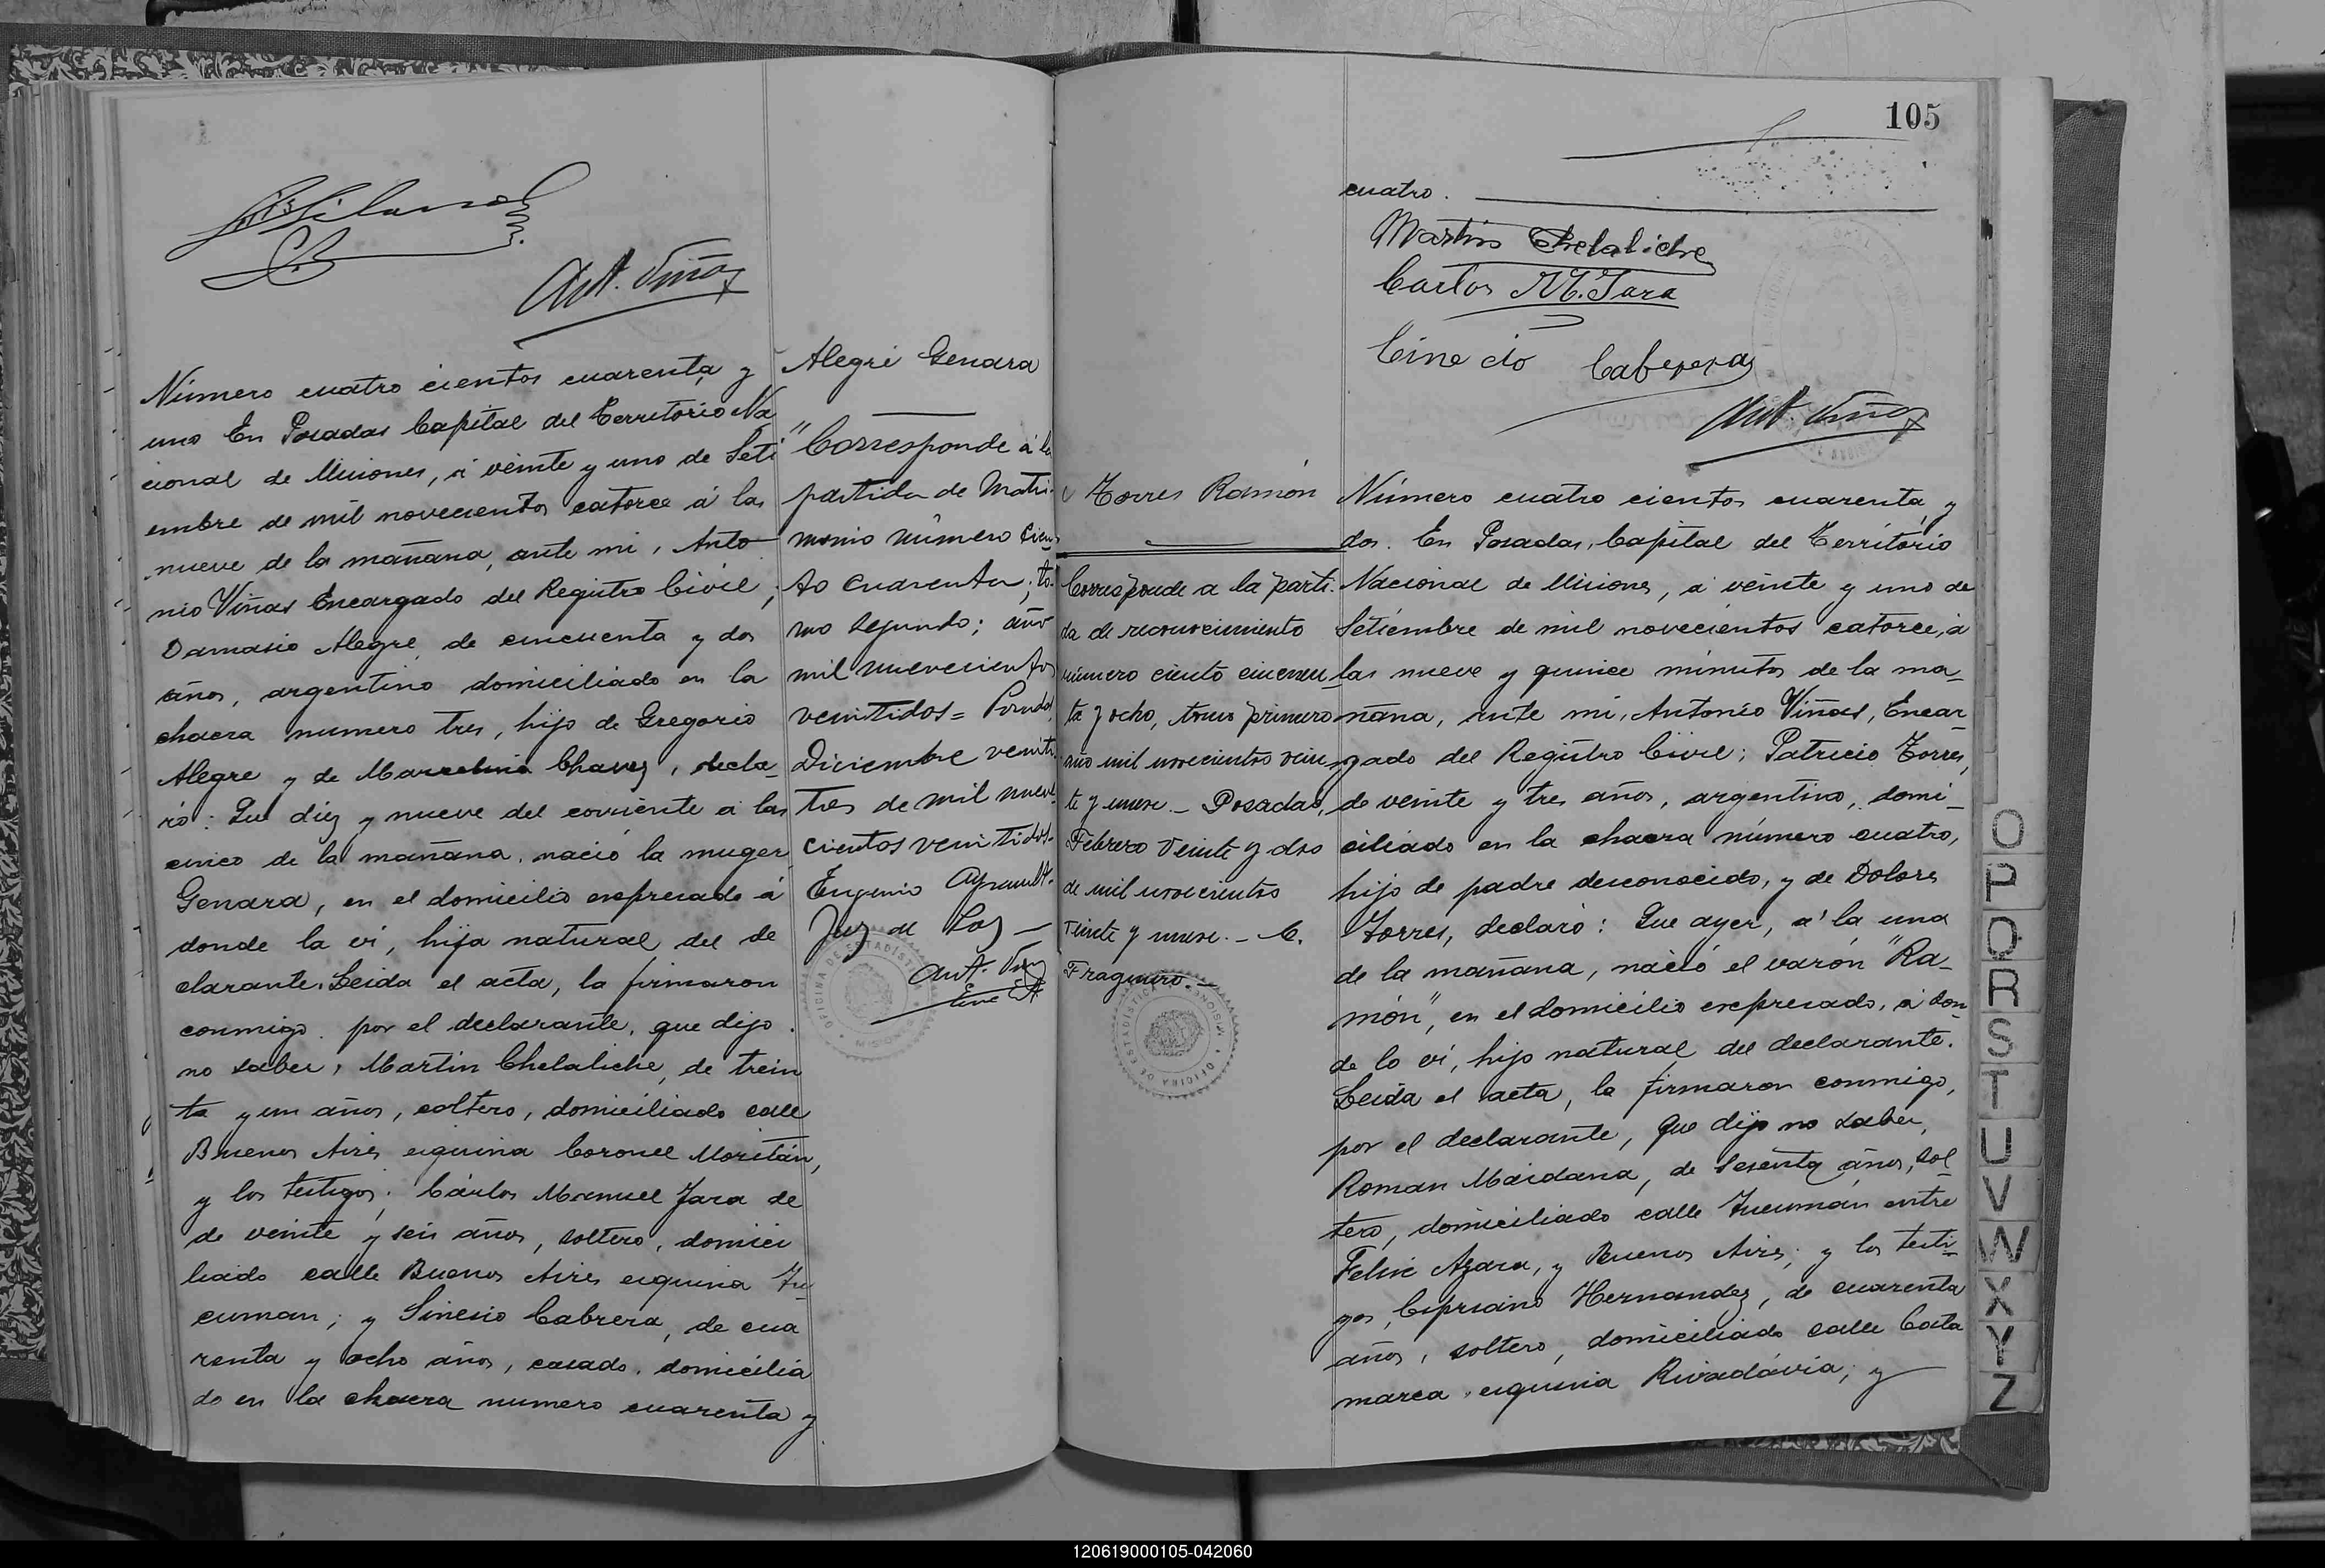 Ant. Viñas
Número cuatro cientos cuarenta y
uno En Posadas Capital del Territorio Na
cional de Misiones, á veinte y uno de Seti
embre de mil novecientos catorce á las
nueve de la mañana, ante mi, Anto
nio Viñas Encargado del Registro Civil;
Damasio Alegre, de cincuenta y dos
años, argentino domiciliado en la
chacra numero tres, hijo de Gregorio
Alegre y de Marcelina Chavez, decla-
ró: Que diez y nueve del corriente á las
cinco de la mañana, nació la muger
Genara, en el domicilio expresado á
donde la vi, hija natural del de
clarante. Leida el acta, la firmaron
conmigo por el declarante, que dijo
no saber, Martin Chelaliche, de trein
ta y un años, soltero, domiciliado calle
Buenos Aires esquina Coronel Moritán,
y los testigos; Cárlos Manuel Jara de
de veinte y seis años, soltero, domici
liado calle Buenos Aires esquina Tu-
cuman; y Sinesio Cabrera, de cua
renta y ocho años, casado, domicilia
do en la chacra numero cuarenta y
Alegre Genara
"Corresponde á la
partida de Matri-
monio número cien-
to cuarenta; to-
mo segundo; año
mil nuevecientos
ventidos = Posadas,
Diciembre venti-
tres de mil nueve-
cientos ventidos-
Eugenio Ayrault-
Juz de Paz -
Ant. Viñas
105
cuatro.
Martin Chelaliche
Carlos M. Jara
Cinecio Cabrera
Ant. Viñas
Torres Ramón
Corresponde a la parti-
da de reconocimiento
número ciento cincuen-
ta y ocho, tomo primero
año mil novecientos vein-
te y nueve. - Posadas,
Febrero veinte y dos
de mil novecientos
veinte y nueve. - C.
Fragueiro. -
Número cuatro cientos cuarenta y
dos. En Posadas, Capital del Territorio
Nacional de Misiones, á veinte y uno de
Setiembre de mil novecientos catorce, á
las nueve y quince minutos de la ma-
ñana, ante mi, Antonio Viñas, Encar-
gado del Registro Civil; Patricio Torres,
de veinte y tres años, argentino, domi-
ciliado en la chacra número cuatro,
hijo de padre desconocido, y de Dolores
Torres, declaró: Que ayer, á la una
de la mañana, nació el varón "Ra-
món", en el domicilio expresado, á don-
de lo vi, hijo natural del declarante.
Leida el acta, la firmaron conmigo,
por el declarante, que dijo no saber,
Roman Maidana, de sesenta años, sol-
tero, domiciliado calle Tucumán entre
Felix Azara, y Buenos Aires; y los testi-
gos, Cipriano Hernandez, de cuarenta
años, soltero, domiciliado calle Cata
marca esquina Rivadávia; y
O
P
Q
R
S
T
U
V
W
X
Y
Z
120619000105-042060